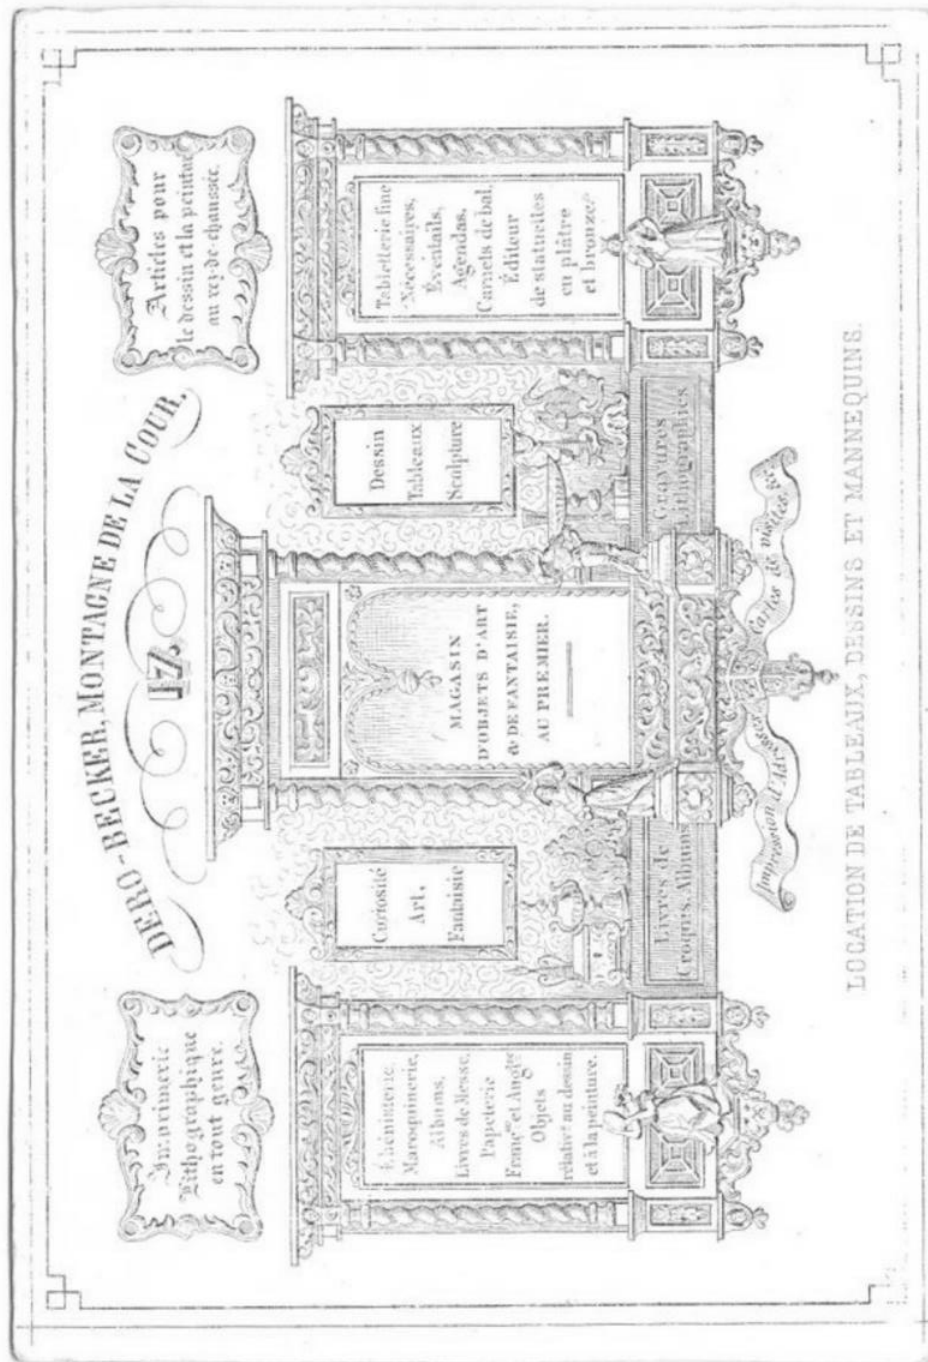 DERO-BECKER, MONTAGNE DE LA COUR.
17.
Imprimerie
Lithographique
en tout genre.
Articles pour
le dessin et la peinture
au rez-de-chaussée.
Ébénisterie,
Maroquinerie,
Albums,
Livres de Messe,
Papeterie
Franç.se et Angl.se
Objets
rélatifs au dessin
et à la peinture.
Curiosité
Art,
Fantaisie
MAGASIN
D'OBJETS D'ART
& DE FANTAISIE,
AU PREMIER.
Dessin
Tableaux
Sculpture
Tabletterie fine
Nécessaires,
Éventails,
Agendas,
Carnets de bal,
Éditeur
de statuettes
en plâtre
et bronze.
Livres de
Croquis. Albums
Gravures
Lithographies
Impression d'Adresses Cartes de visites, &c.
LOCATION DE TABLEAUX, DESSINS ET MANNEQUINS.